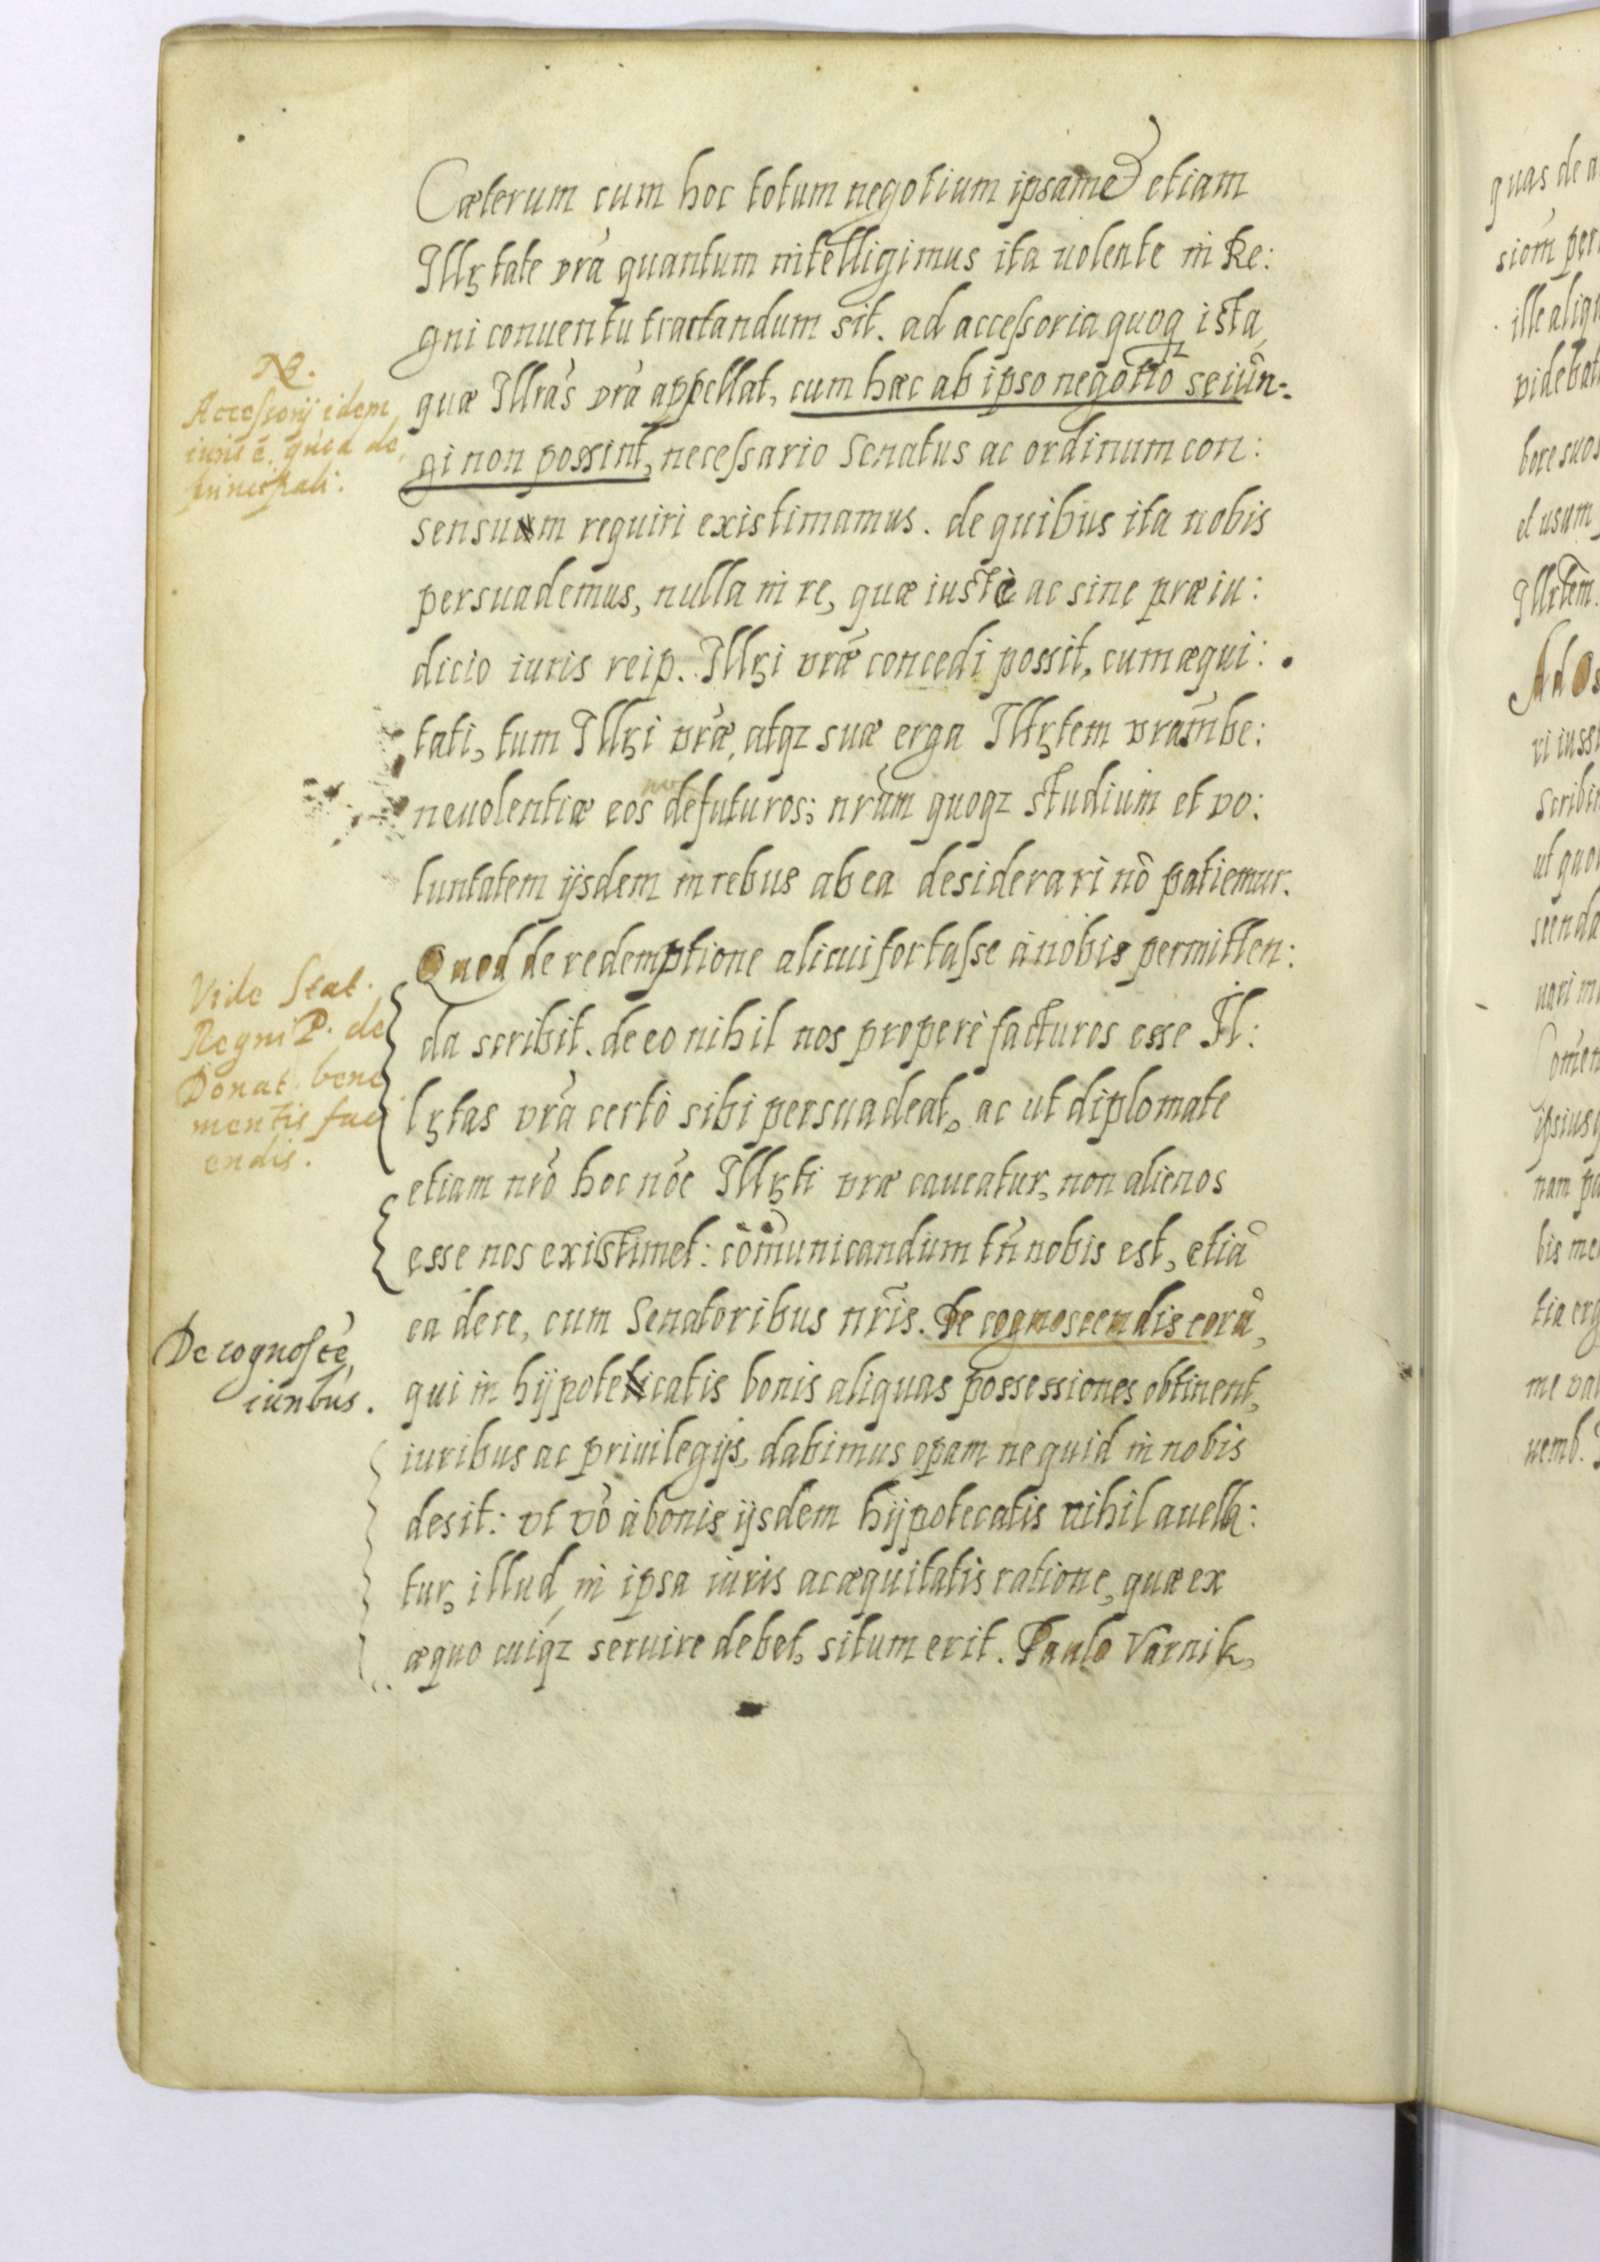 Cæterum cum hoc totum negotium ipsamet etiam
Illꝛtate vrã quantum intelligimus ita uolente in Re:
gni conuentu tractandum sit. ad accessoria quoqz ista,
quæ Illrãs vrã appellat, cum hæc ab ipso negotio seiun-
gi non possint, necessario Senatus ac ordinum con:
sensum requiri existimamus. de quibus ita nobis
persuademus, nulla in re, quæ iustè ac sine præiu:
dicio iuris reip. Illꝛi vræ concedi possit, cum æqui:
tati, tum Illꝛi vræ, atqz suæ erga Illꝛtem vram be:
neuolentiæ eos defuturos; nrũm quoqz studium et vo:
luntatem ijsdem in rebus ab ea desiderari nõ patiemur.
Quod de redemptione alicui fortasse à nobis permitten:
da scribit. de eo nihil nos properè facturos esse Il:
lꝛtas vrã certò sibi persuadeat, ac ut diplomate
etiam nrõ hoc nõe Illꝛti vræ caueatur, non alienos
esse nos existimet: cõmunicandum tñ nobis est, etiã
ea de re, cum Senatoribus nrĩs. De cognoscendis eorũ,
qui in hypotecatis bonis aliquas possessiones obtinent,
iuribus ac priuilegijs, dabimus operam ne quid in nobis
desit: vt võ à bonis ijsdem hypotecatis nihil auella:
tur, illud in ipsa iuris ac æquitatis ratione, quæ ex
æquo cuiqz seruire debet, situm erit. Paulo Varnik,
NB.
Accessorij idem
iuris ẽ, quod de
principali.
Vide Stat.
Regni P. de
Donat. bene
mentis faci
endis.
De cognoscẽ
iuribus.
quas de a
siom per
ille aliq
videbat
bore suos
et usam
Illꝛtem
Ad Os
ri iussi
scribi
ut quo
scenda
uari in
Comen
ipsius
nam pu
bis me
tia erg
me val
uemb.